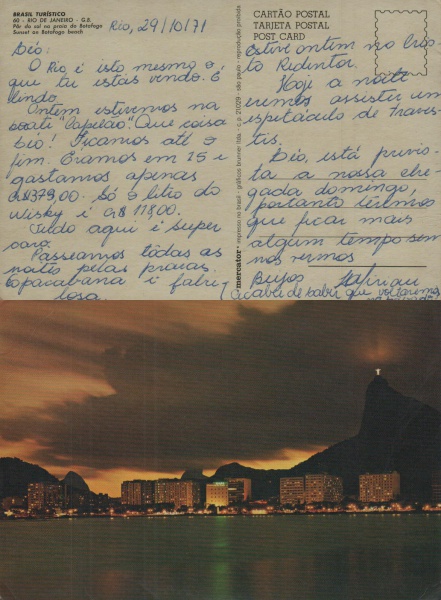 BRASIL TURÍSTICO
60 - RIO DE JANEIRO - G.B.
Pôr do sol na praia do Botafogo
Sunset on Botafogo beach
Rio, 29/10/71
O Rio é isto mesmo o
que tu estas vendo. É
lindo.
Ontem estivemos na
boati "Capelão". Que coisa
Ficamos até o
fim. Éramos em 15 e
gastamos apenas
CR$379,00. Só o litro do
Wisky é CR$ 118,00.
Tudo aqui é super
caro.
Passeamos todas as
noites pelas praias.
Copacabana é fabu
losa.
mercator
impresso no brasil - gráficos brunner ltda. - c. p. 71029 - são paulo - reprodução proibida
CARTÃO POSTAL
TARJETA POSTAL
POST CARD
estive ontem no Cris
to Redentor.
Hoje a noite
eremos assistir um
espetáculo de Traves
tis.
está previs
ta a nossa che
gada domingo,
portanto teremos
que ficar mais
algum tempo sem
nos vermos
Beijos
(Acabei de saber que voltaremos